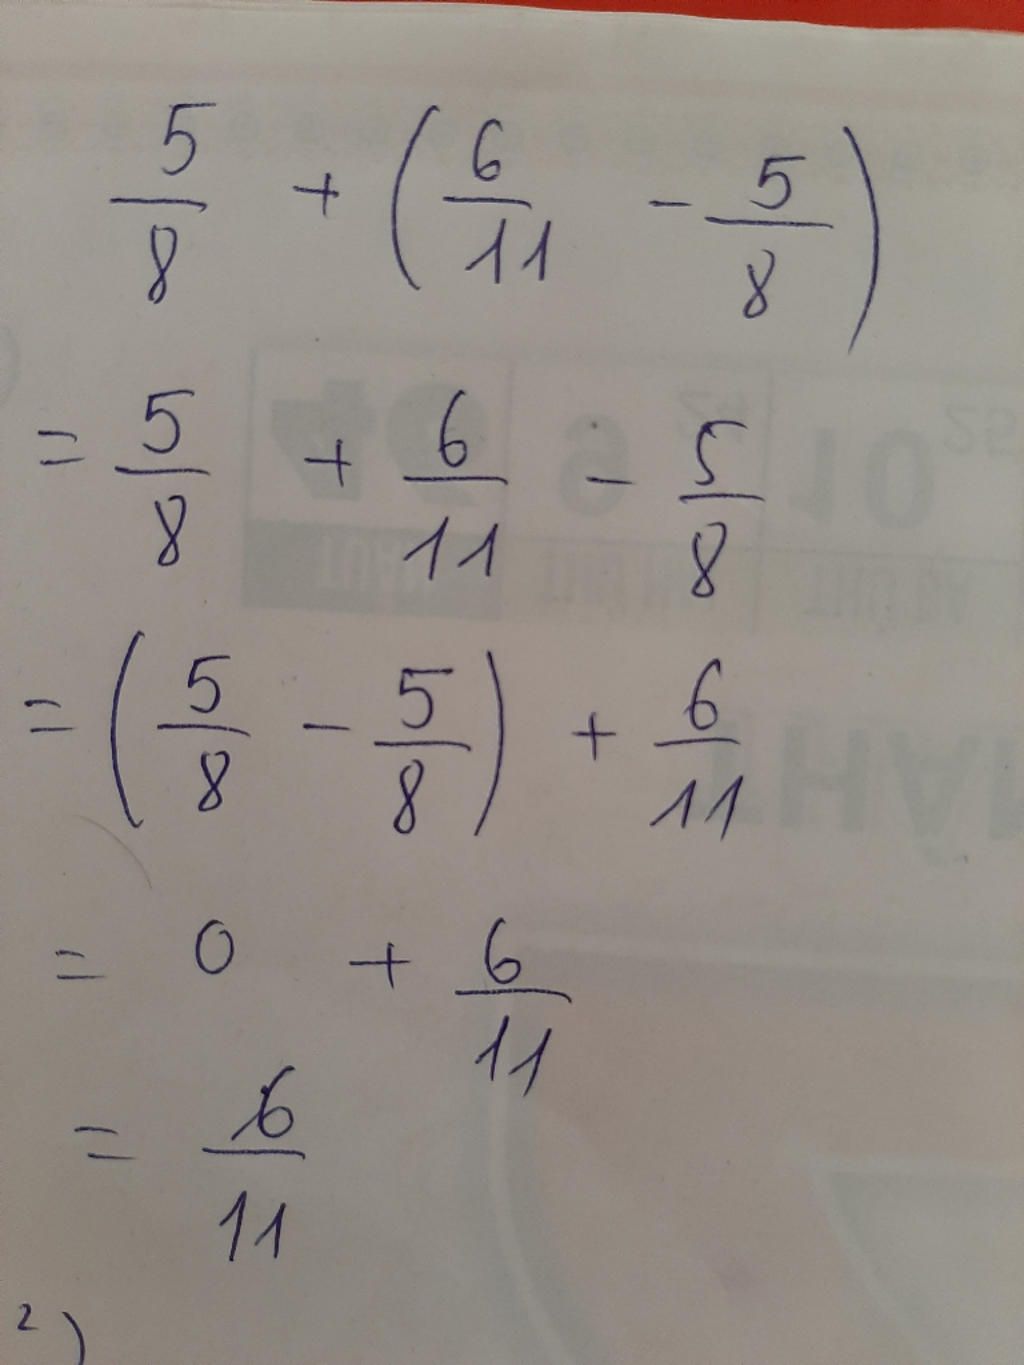 5/8 + (6/11 - 5/8)
= 5/8 + 6/11 - 5/8
= (5/8 - 5/8) + 6/11
= 0 + 6/11
= 6/11
2)